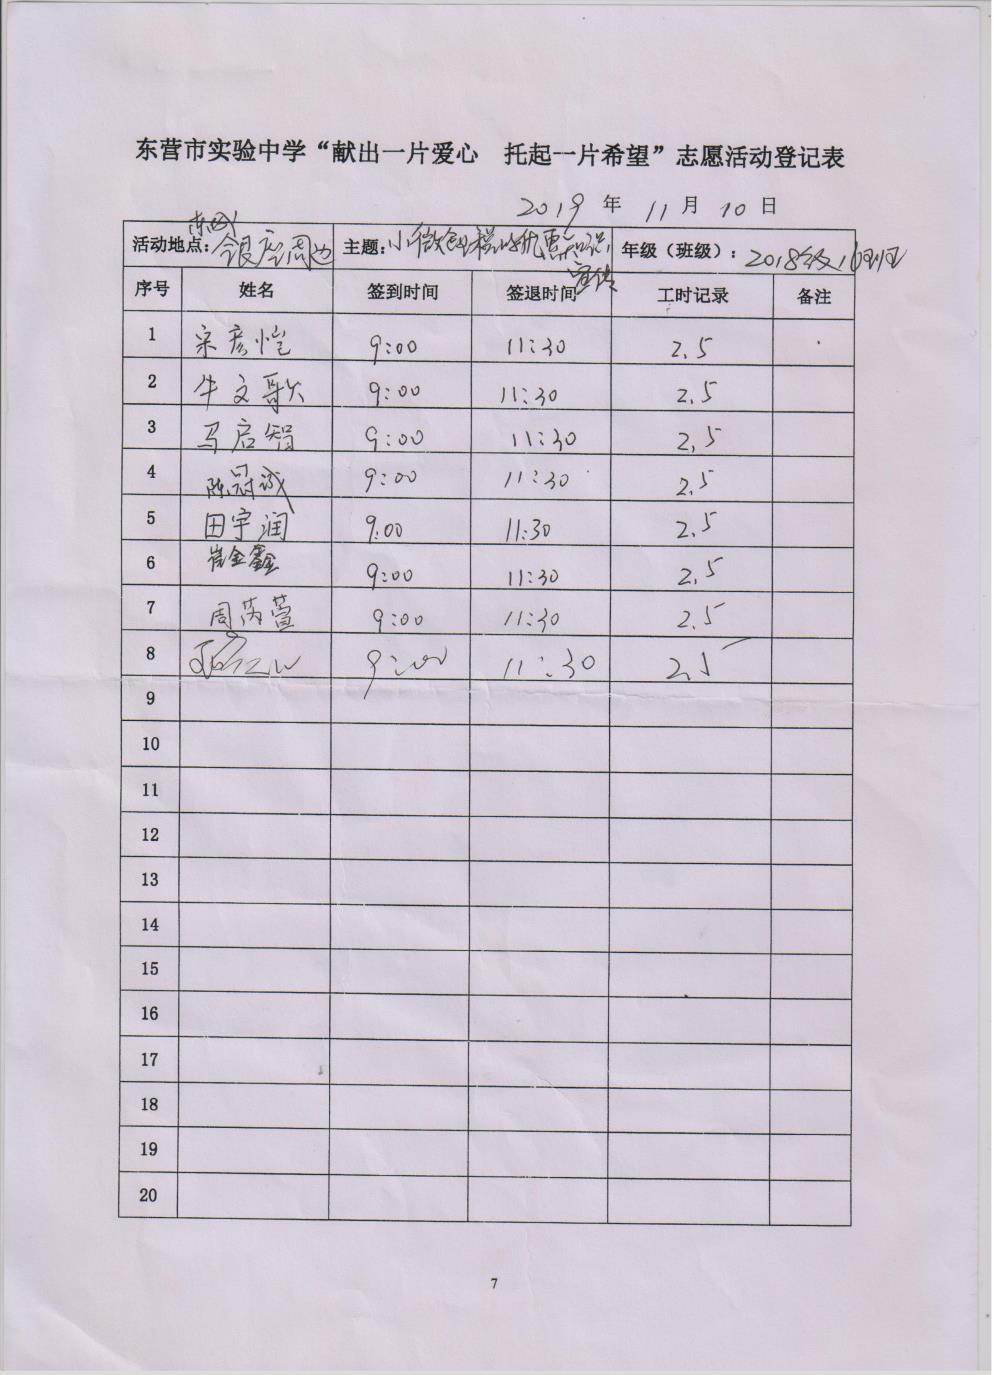 东营市实验中学“献出一片爱心 托起一片希望”志愿活动登记表
2019 年 11 月 10 日
活动地点： 银座周边 主题： 小微 宣传 年级（班级）： 2018级16班
序号 姓名 签到时间 签退时间 工时记录 备注
1 宋彦恺 9:00 11:30 2.5
2 牛文歌 9:00 11:30 2.5
3 马启智 9:00 11:30 2.5
4 陈冠诚 9:00 11:30 2.5
5 田宇润 9:00 11:30 2.5
6 崔金鑫 9:00 11:30 2.5
7 周芮萱 9:00 11:30 2.5
8 9:00 11:30 2.5
9
10
11
12
13
14
15
16
17
18
19
20
7